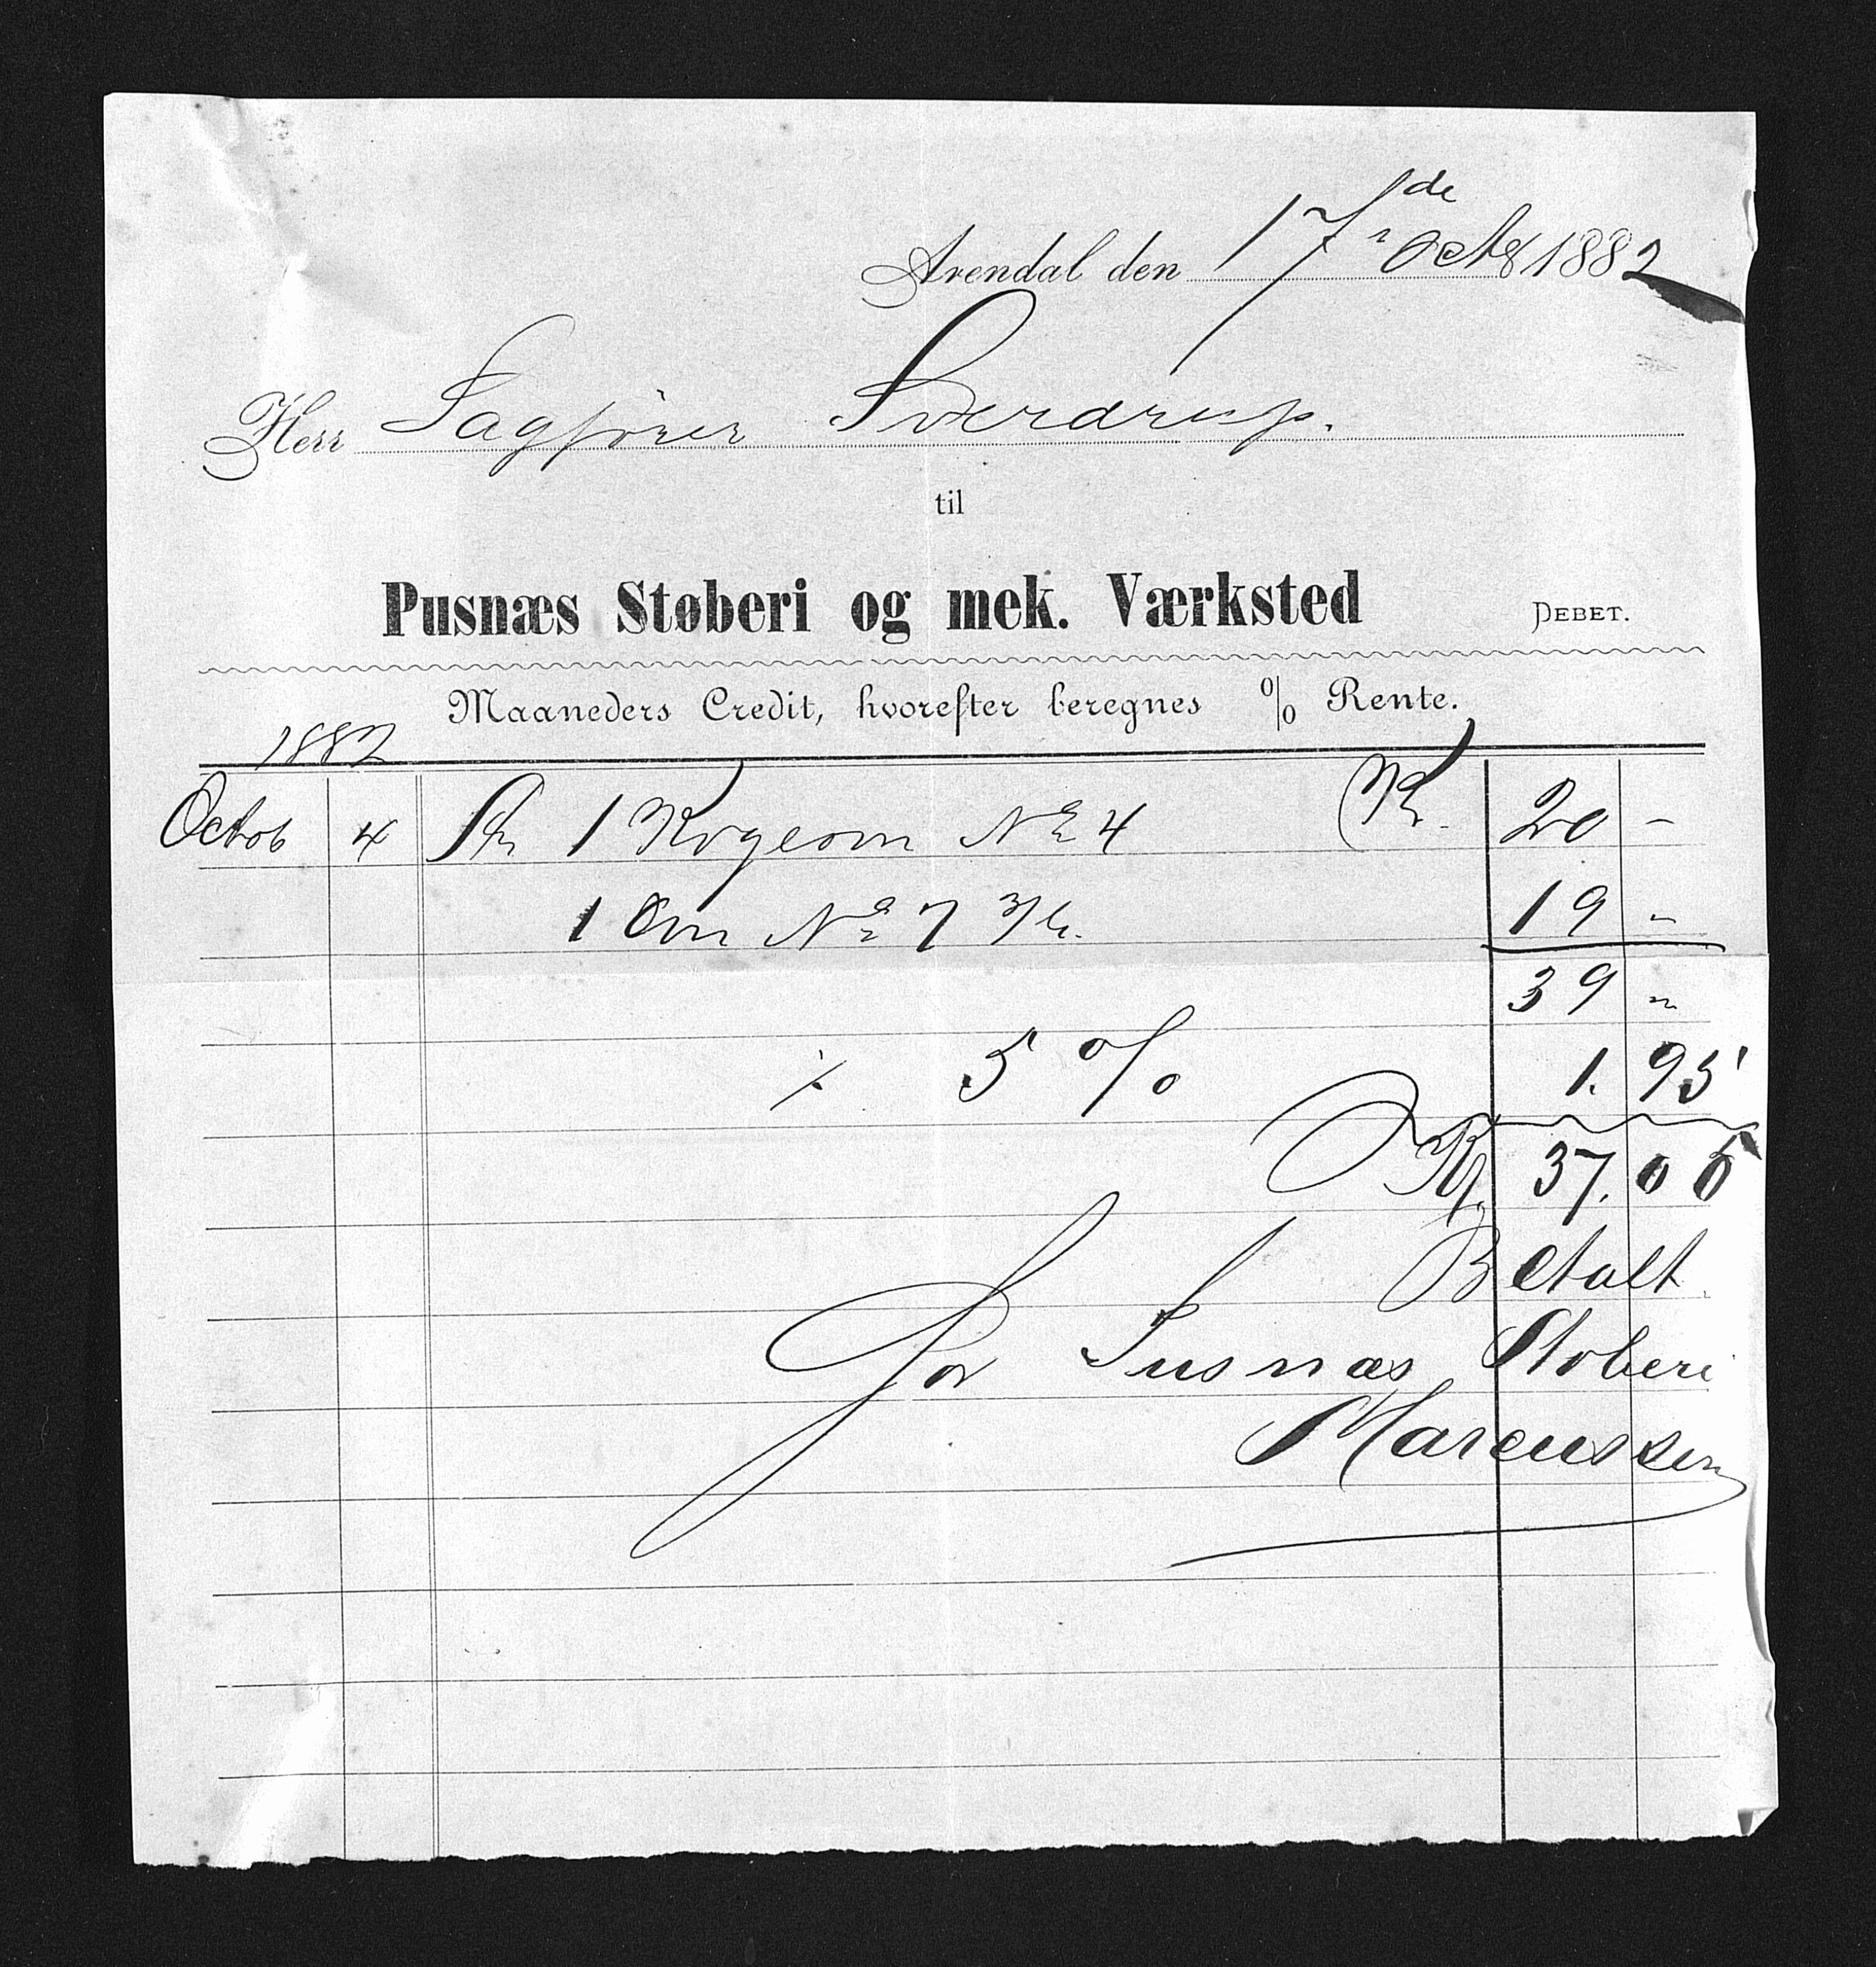 Arendal den 17de Octb 1882
Herr Sagfører Sverdrup.
til
Pusnæs Støberi og mek. Værksted DEBET.
Maaneders Credit, hvorefter beregnes % Rente.
1882
Octob 4 1 Kogeovn No 4 Kr. 20 -
1 Ovn No 7 19 -
39 "
÷ 5 % 1.95
Kr. 37.05
Betalt
For Pusnæs Støberi
Marcussen